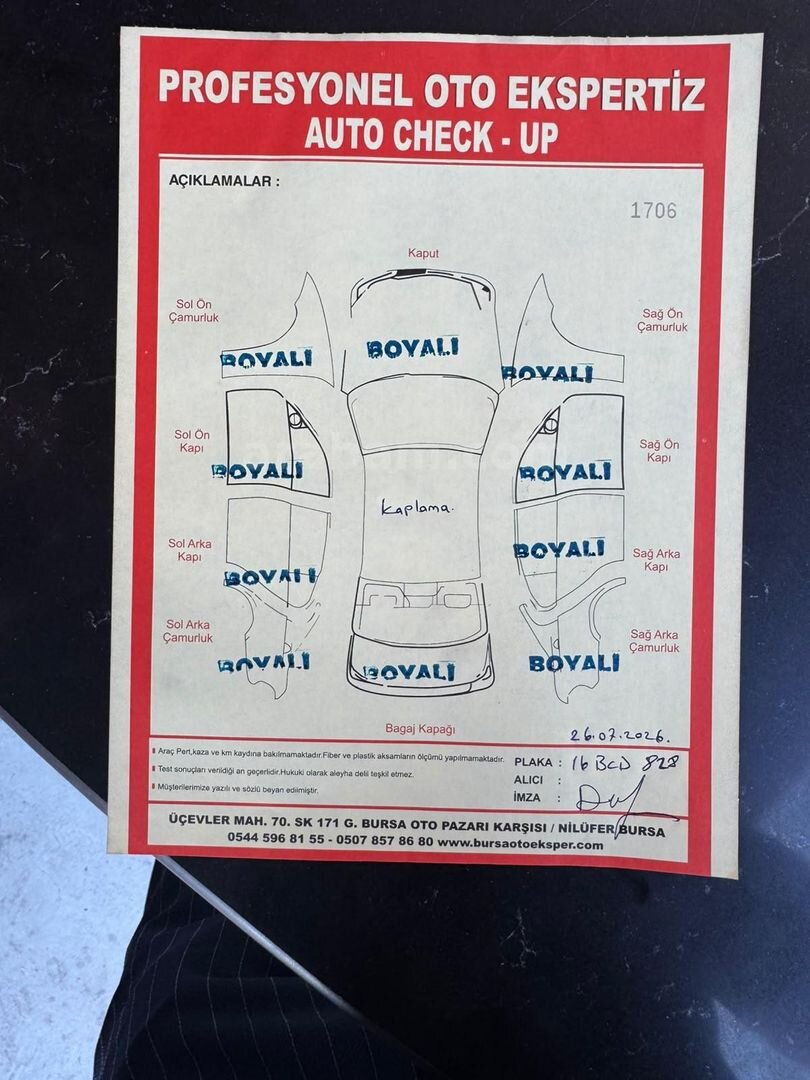 PROFESYONEL OTO EKSPERTİZ
AUTO CHECK - UP
AÇIKLAMALAR :
1706
Kaput
Sol Ön
Çamurluk
Sağ Ön
Çamurluk
BOYALI
BOYALI
BOYALI
Sol Ön
Kapı
Sağ Ön
Kapı
BOYALI
BOYALI
Kaplama.
Sol Arka
Kapı
Sağ Arka
Kapı
BOYALI
BOYALI
Sol Arka
Çamurluk
Sağ Arka
Çamurluk
BOYALI
BOYALI
BOYALI
Bagaj Kapağı
26.07.2026.
Araç Pert,kaza ve km kaydına bakılmamaktadır.Fiber ve plastik aksamların ölçümü yapılmamaktadır.
Test sonuçları verildiği an geçerlidir.Hukuki olarak aleyha delil teşkil etmez.
Müşterilerimize yazılı ve sözlü beyan edilmiştir.
PLAKA : 16 BCD 828
ALICI :
İMZA :
ÜÇEVLER MAH. 70. SK 171 G. BURSA OTO PAZARI KARŞISI / NİLÜFER/BURSA
0544 596 81 55 - 0507 857 86 80 www.bursaotoeksper.com